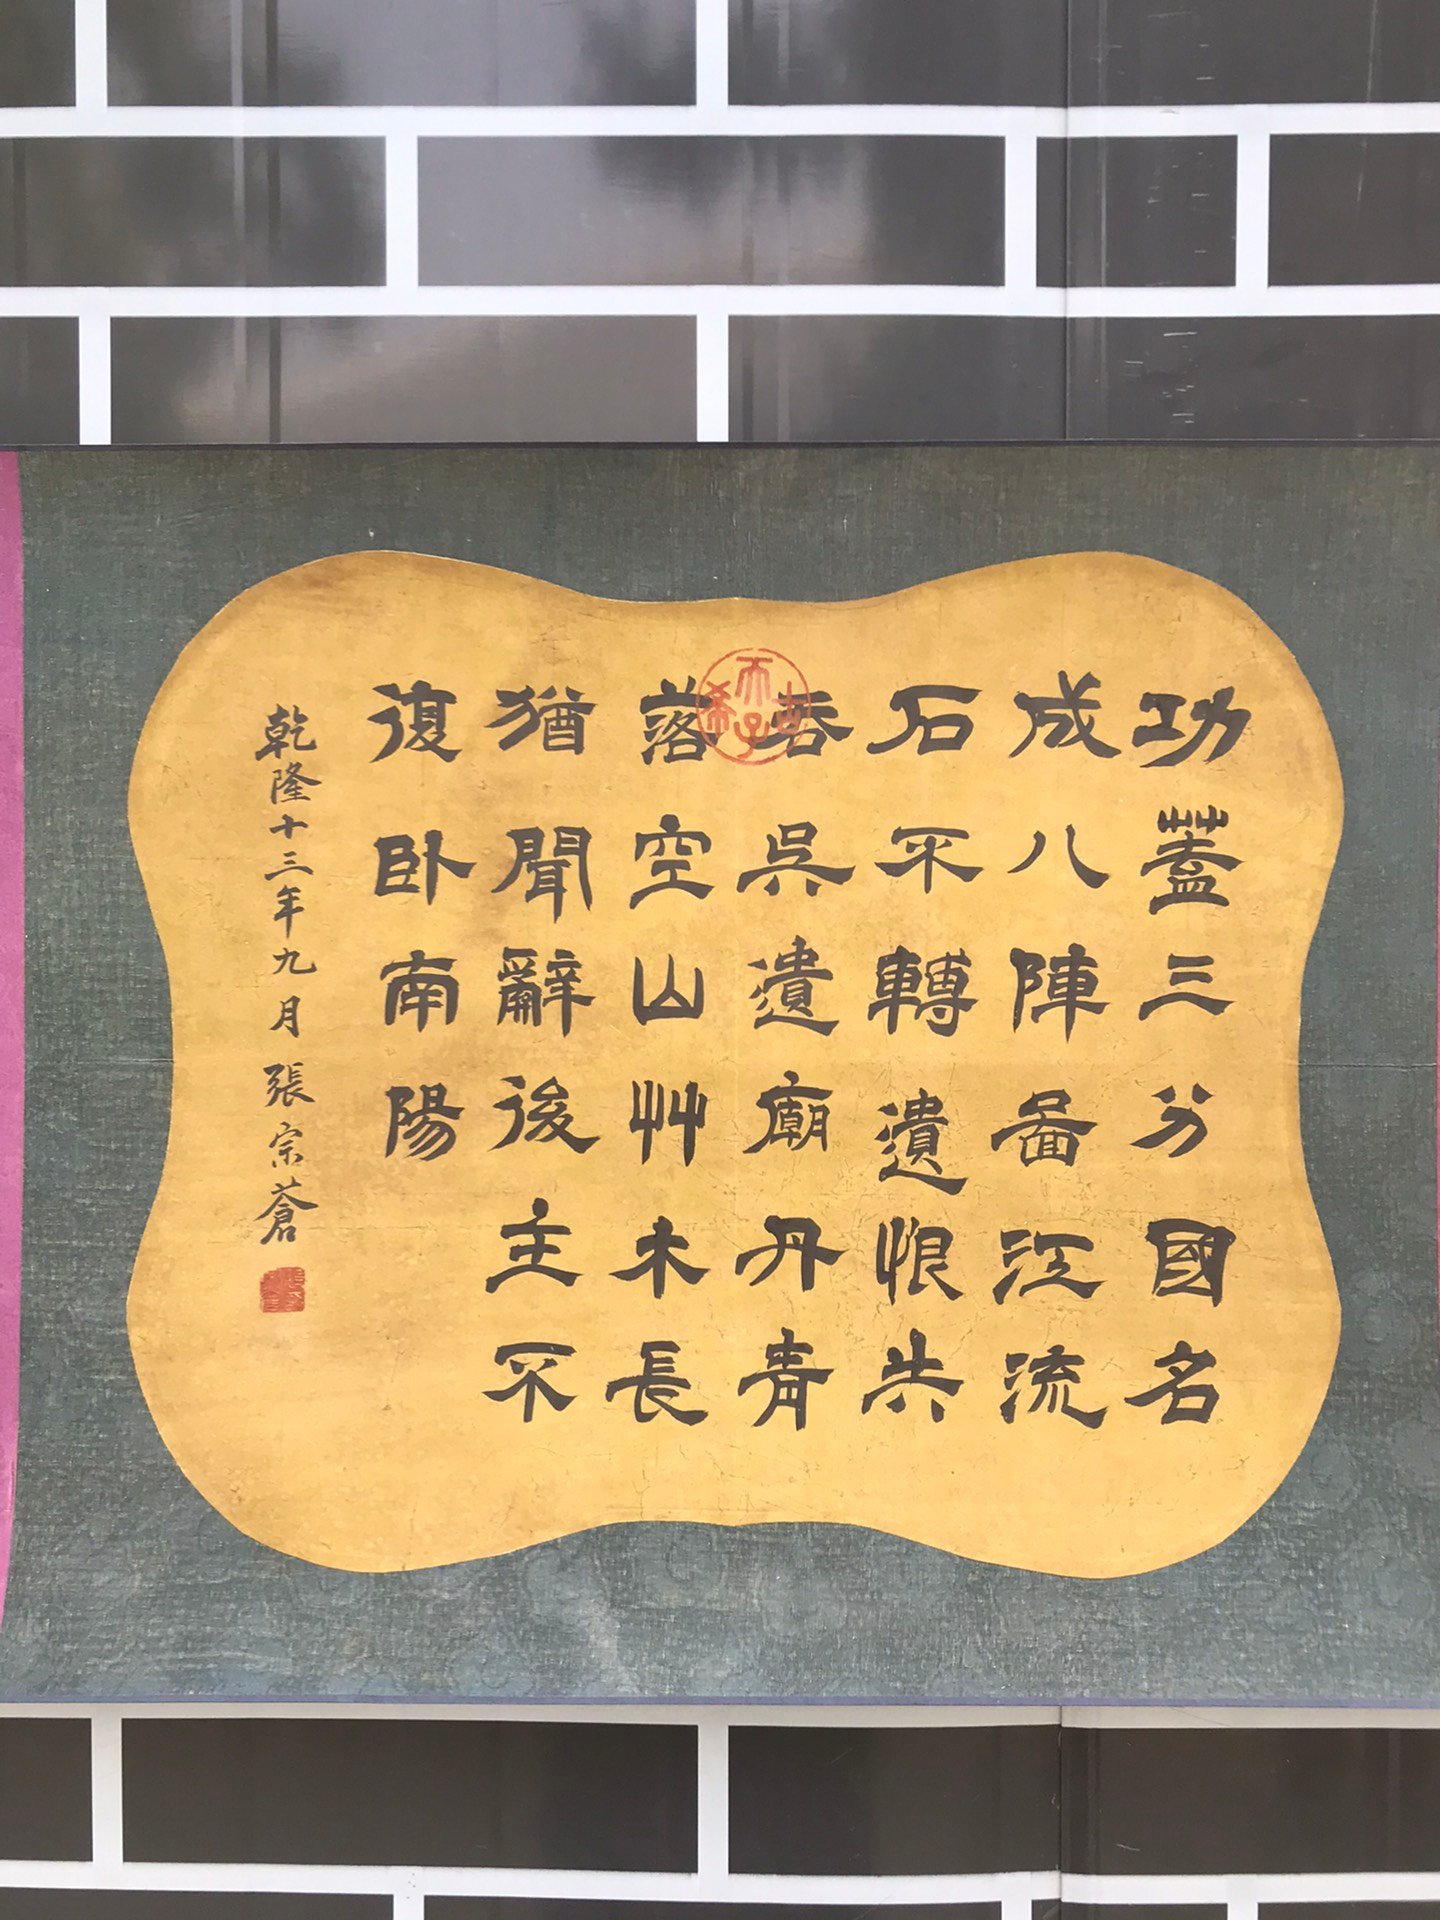 功蓋三分國名
成八陣啚江流
石不轉遺恨共
吞吳遺廟丹青
落空山艸木長
猶聞辭後主不
復卧南陽
乾隆十三年九月張宗蒼
古希天子